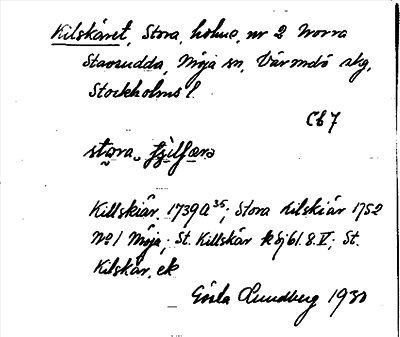 Kilskäret, Stora, holme, nr 2 Norra
Stavsudda, Möja sn, Värmdö skg,
Stockholms l.
Cb 7
stora
Killskiär 1739 A 35; Stora Kilskiär 1752
No 1 Möja; St. Killskär kbj 61.8.V; St.
Kilskär, ek
Gösta Lundberg 1930